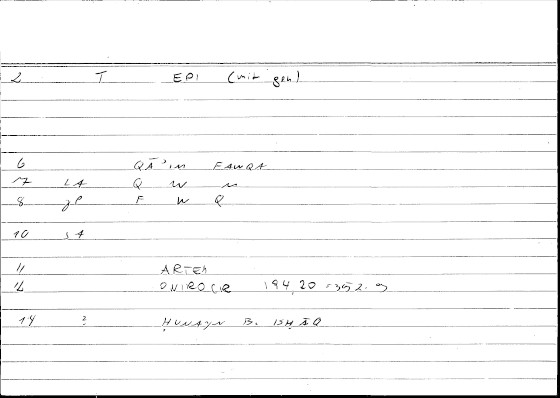 2 T EPI (mit gen)
6 QĀ'IM FAWQA
7 LA Q W M
8 gP F W Q
10 SA
11 ARTEM
12 ONIROCR 194,20 = 352.9
14 ? ḤUNAYN B. ISḤĀQ